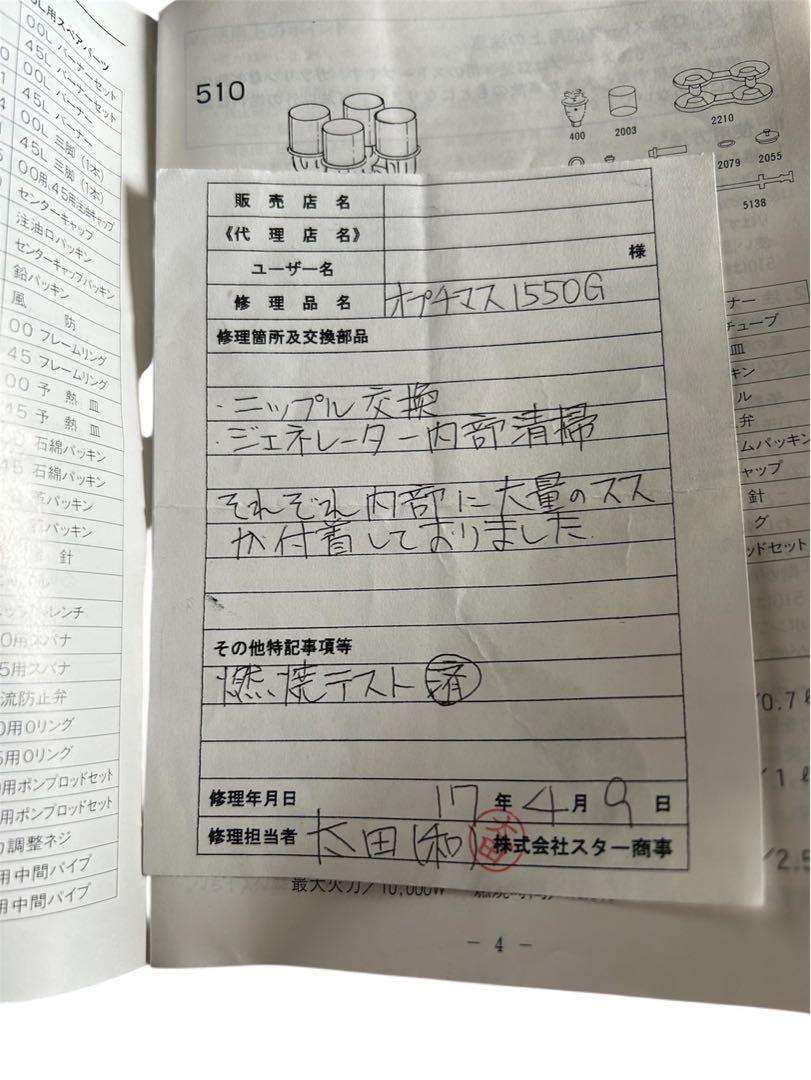 L用スペアパーツ
00L バーナーセット
45L バーナーセット
00L バーナー
45L バーナー
00L 三脚 (1本)
45L 三脚 (1本)
00用、45用注油キャップ
センターキャップ
注油口パッキン
センターキャップパッキン
鉛パッキン
風防
00 フレームリング
45 フレームリング
00 予熱皿
45 予熱皿
石綿パッキン
45 石綿パッキン
パッキン
パッキン
針
レンチ
0用スパナ
5用スパナ
流防止弁
0用Oリング
5用Oリング
用ポンプロッドセット
用ポンプロッドセット
調整ネジ
用中間パイプ
用中間パイプ
510
400
2003
2210
2079
2055
5138
販売店名
《代理店名》
ユーザー名 様
修理品名 オプチマス1550G
修理箇所及交換部品
・ニップル交換
・ジェネレーター内部清掃
それぞれ内部に大量のスス
が付着しておりました.
その他特記事項等
燃焼テスト 済
修理年月日 17年4月9日
修理担当者 太田(和) 太田 株式会社スター商事
ナー
チューブ
皿
キン
ル
弁
ムパッキン
キャップ
針
グ
ッドセット
0.7ℓ
1ℓ
2.5
最大火力/10,000W
- 4 -